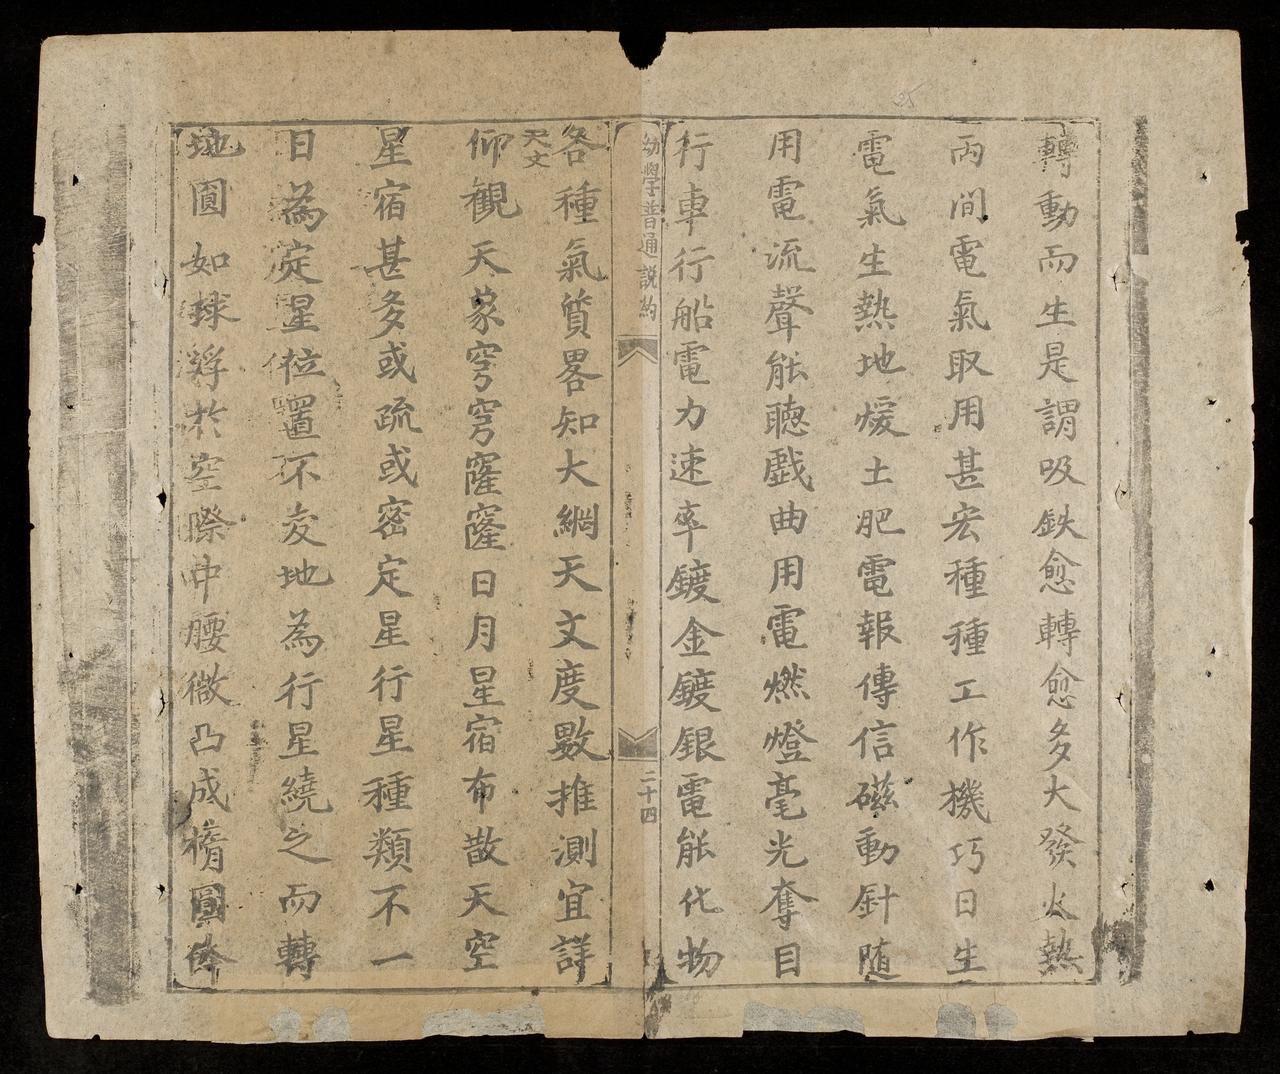 轉動而生是謂吸鉄愈轉愈多大發火熱
两间電氣取用甚宏種種工作機巧日生
電氣生熱地煖土肥電報傳信磁動針随
用電流聲能聴戲曲用電燃燈毫光奪目
行車行船電力速率鍍金鍍銀電能化物
幼學普通説約
二十四
各種氣質畧知大綱天文度數推測宜詳
天文
仰観天象穹穹窿窿日月星宿布散天空
星宿甚多或疏或密定星行星種類不一
日為定星位置不变地為行星繞之而轉
地圓如球浮於空際中腰微凸成橢圓